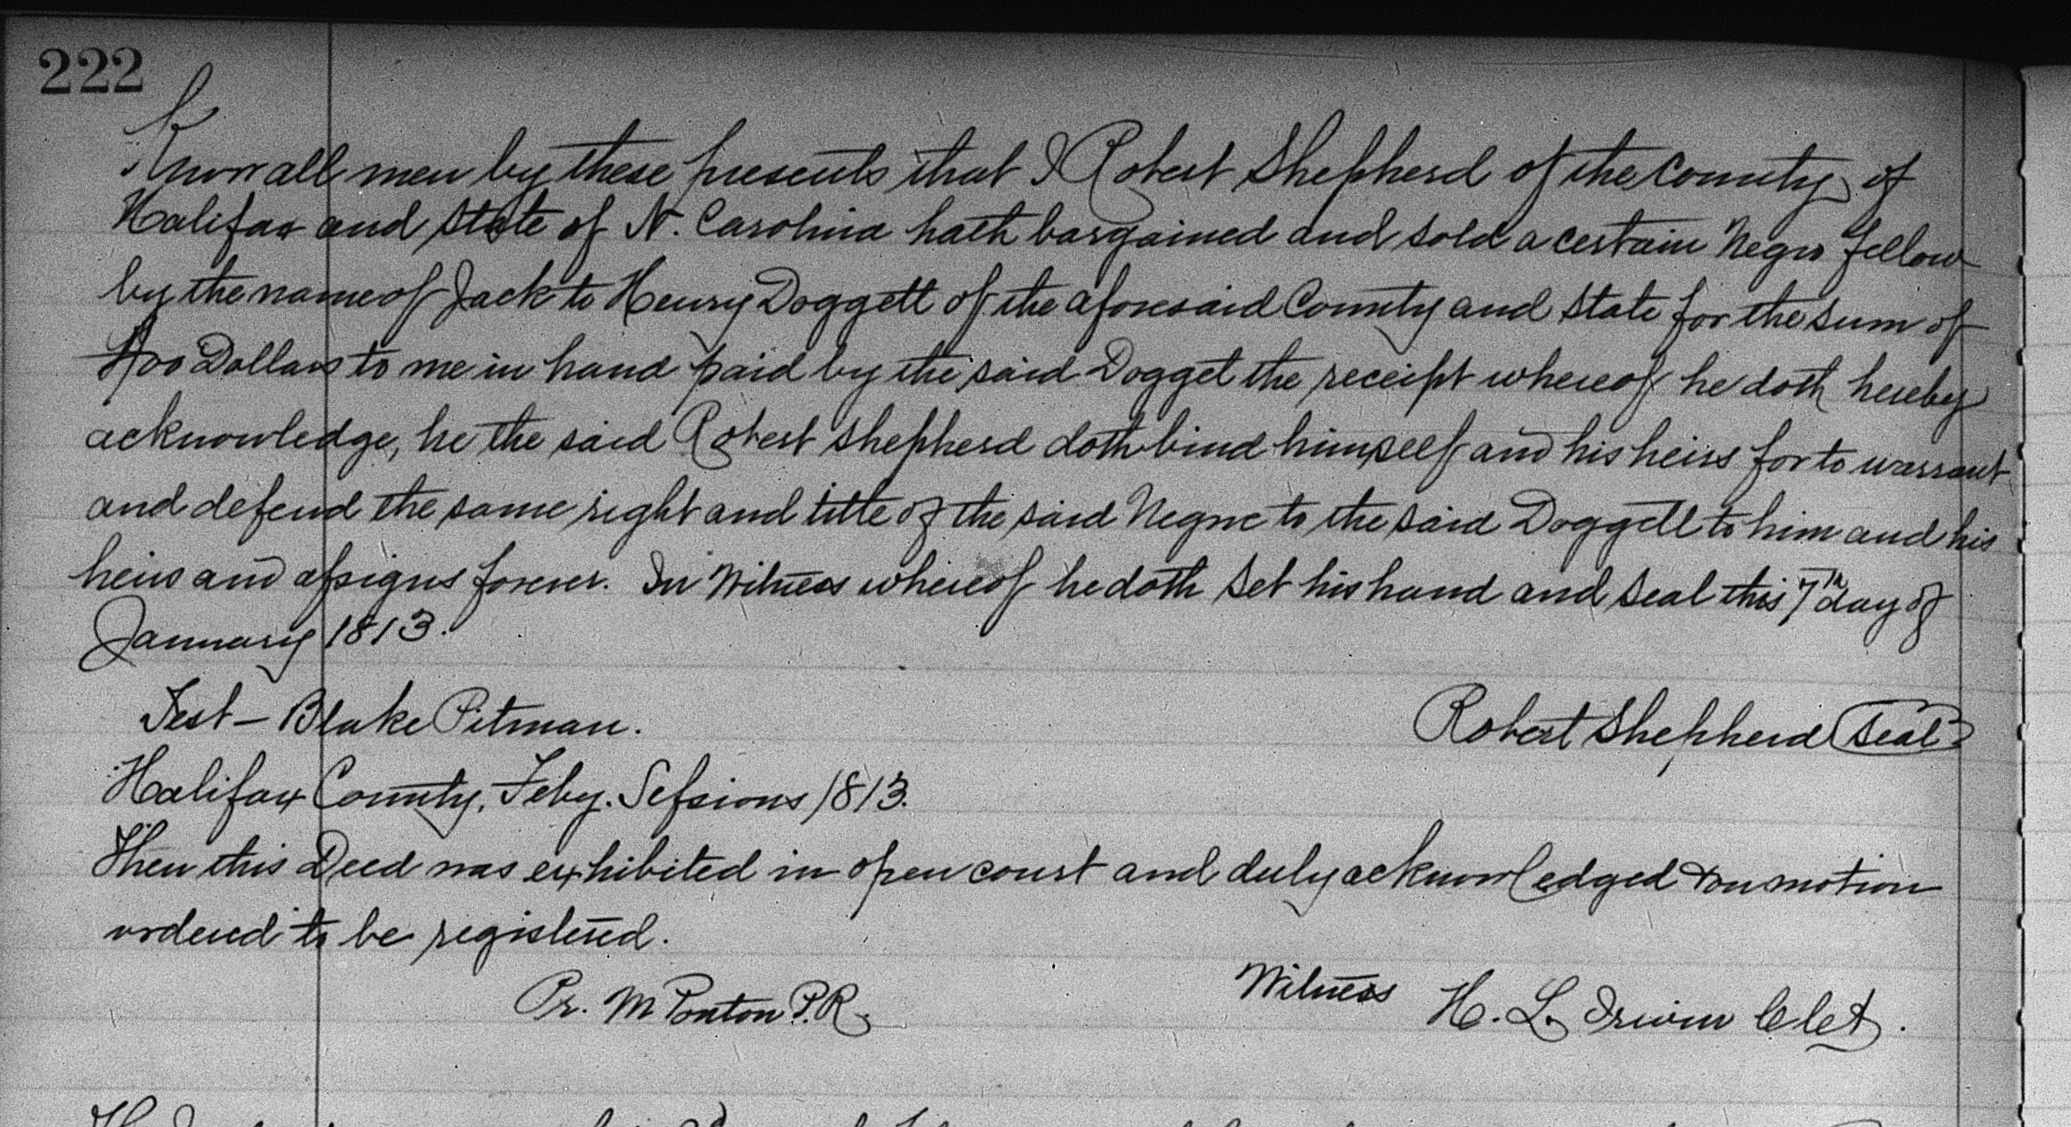 222
Know all men by these presents that I Robert Shepherd of the county of
Halifax and state of N. Carolina hath bargained and sold a certain Negro fellow
by the name of Jack to Henry Doggett of the aforesaid County and State for the sum of
400 Dollars to me in hand paid by the said Dogget the receipt whereof he doth hereby
acknowledge, he the said Robert Shepherd doth bind himself and his heirs for to warrant
and defend the same right and title of the said Negro to the said Doggett to him and his
heirs and assigns forever. In Witness whereof he doth set his hand and seal this 7th day of
January 1813.
Test - Blake Pitman.
Robert Shepherd Seal
Halifax County, Feby. Sessions 1813.
Then this Deed was exhibited in open court and duly acknowledged & on motion
ordered to be registered.
Pr. M Ponton P.R.
Witness H. L. Irwin Clct.